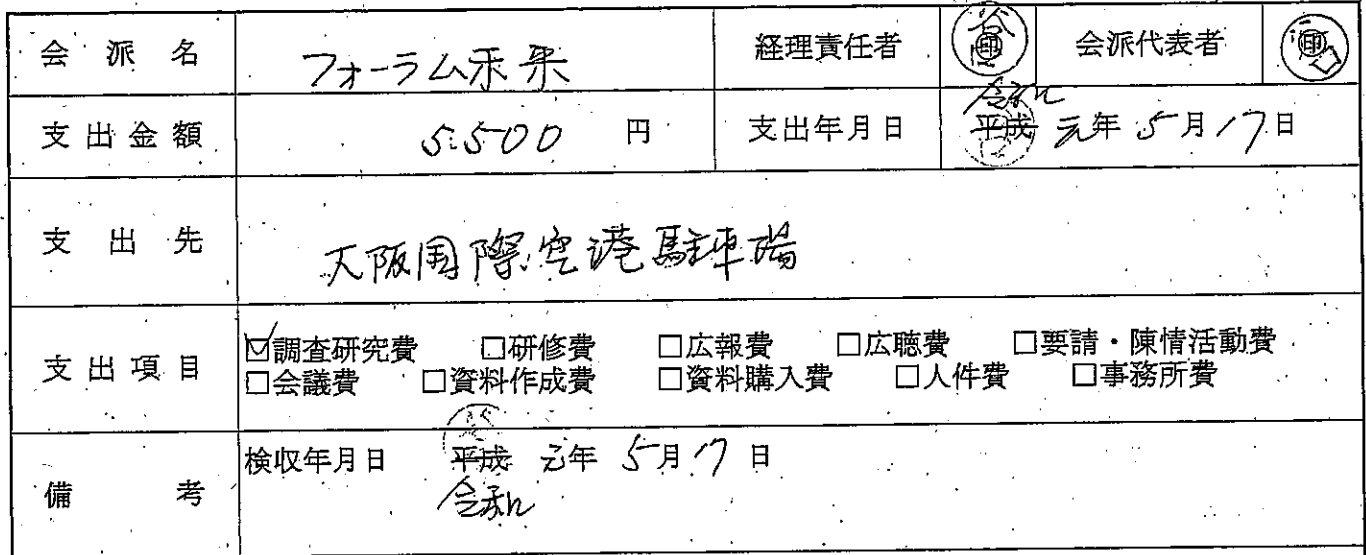 会派名 フォーラム未来 経理責任者 谷 印 会派代表者 印
令和
支出金額 5.500 円 支出年月日 平成 元年 5月 17日
支出先 大阪国際空港駐車場
支出項目 ☑調査研究費 □研修費 □広報費 □広聴費 □要請・陳情活動費
□会議費 □資料作成費 □資料購入費 □人件費 □事務所費
備考 検収年月日 平成 元年 5月 17日
令和